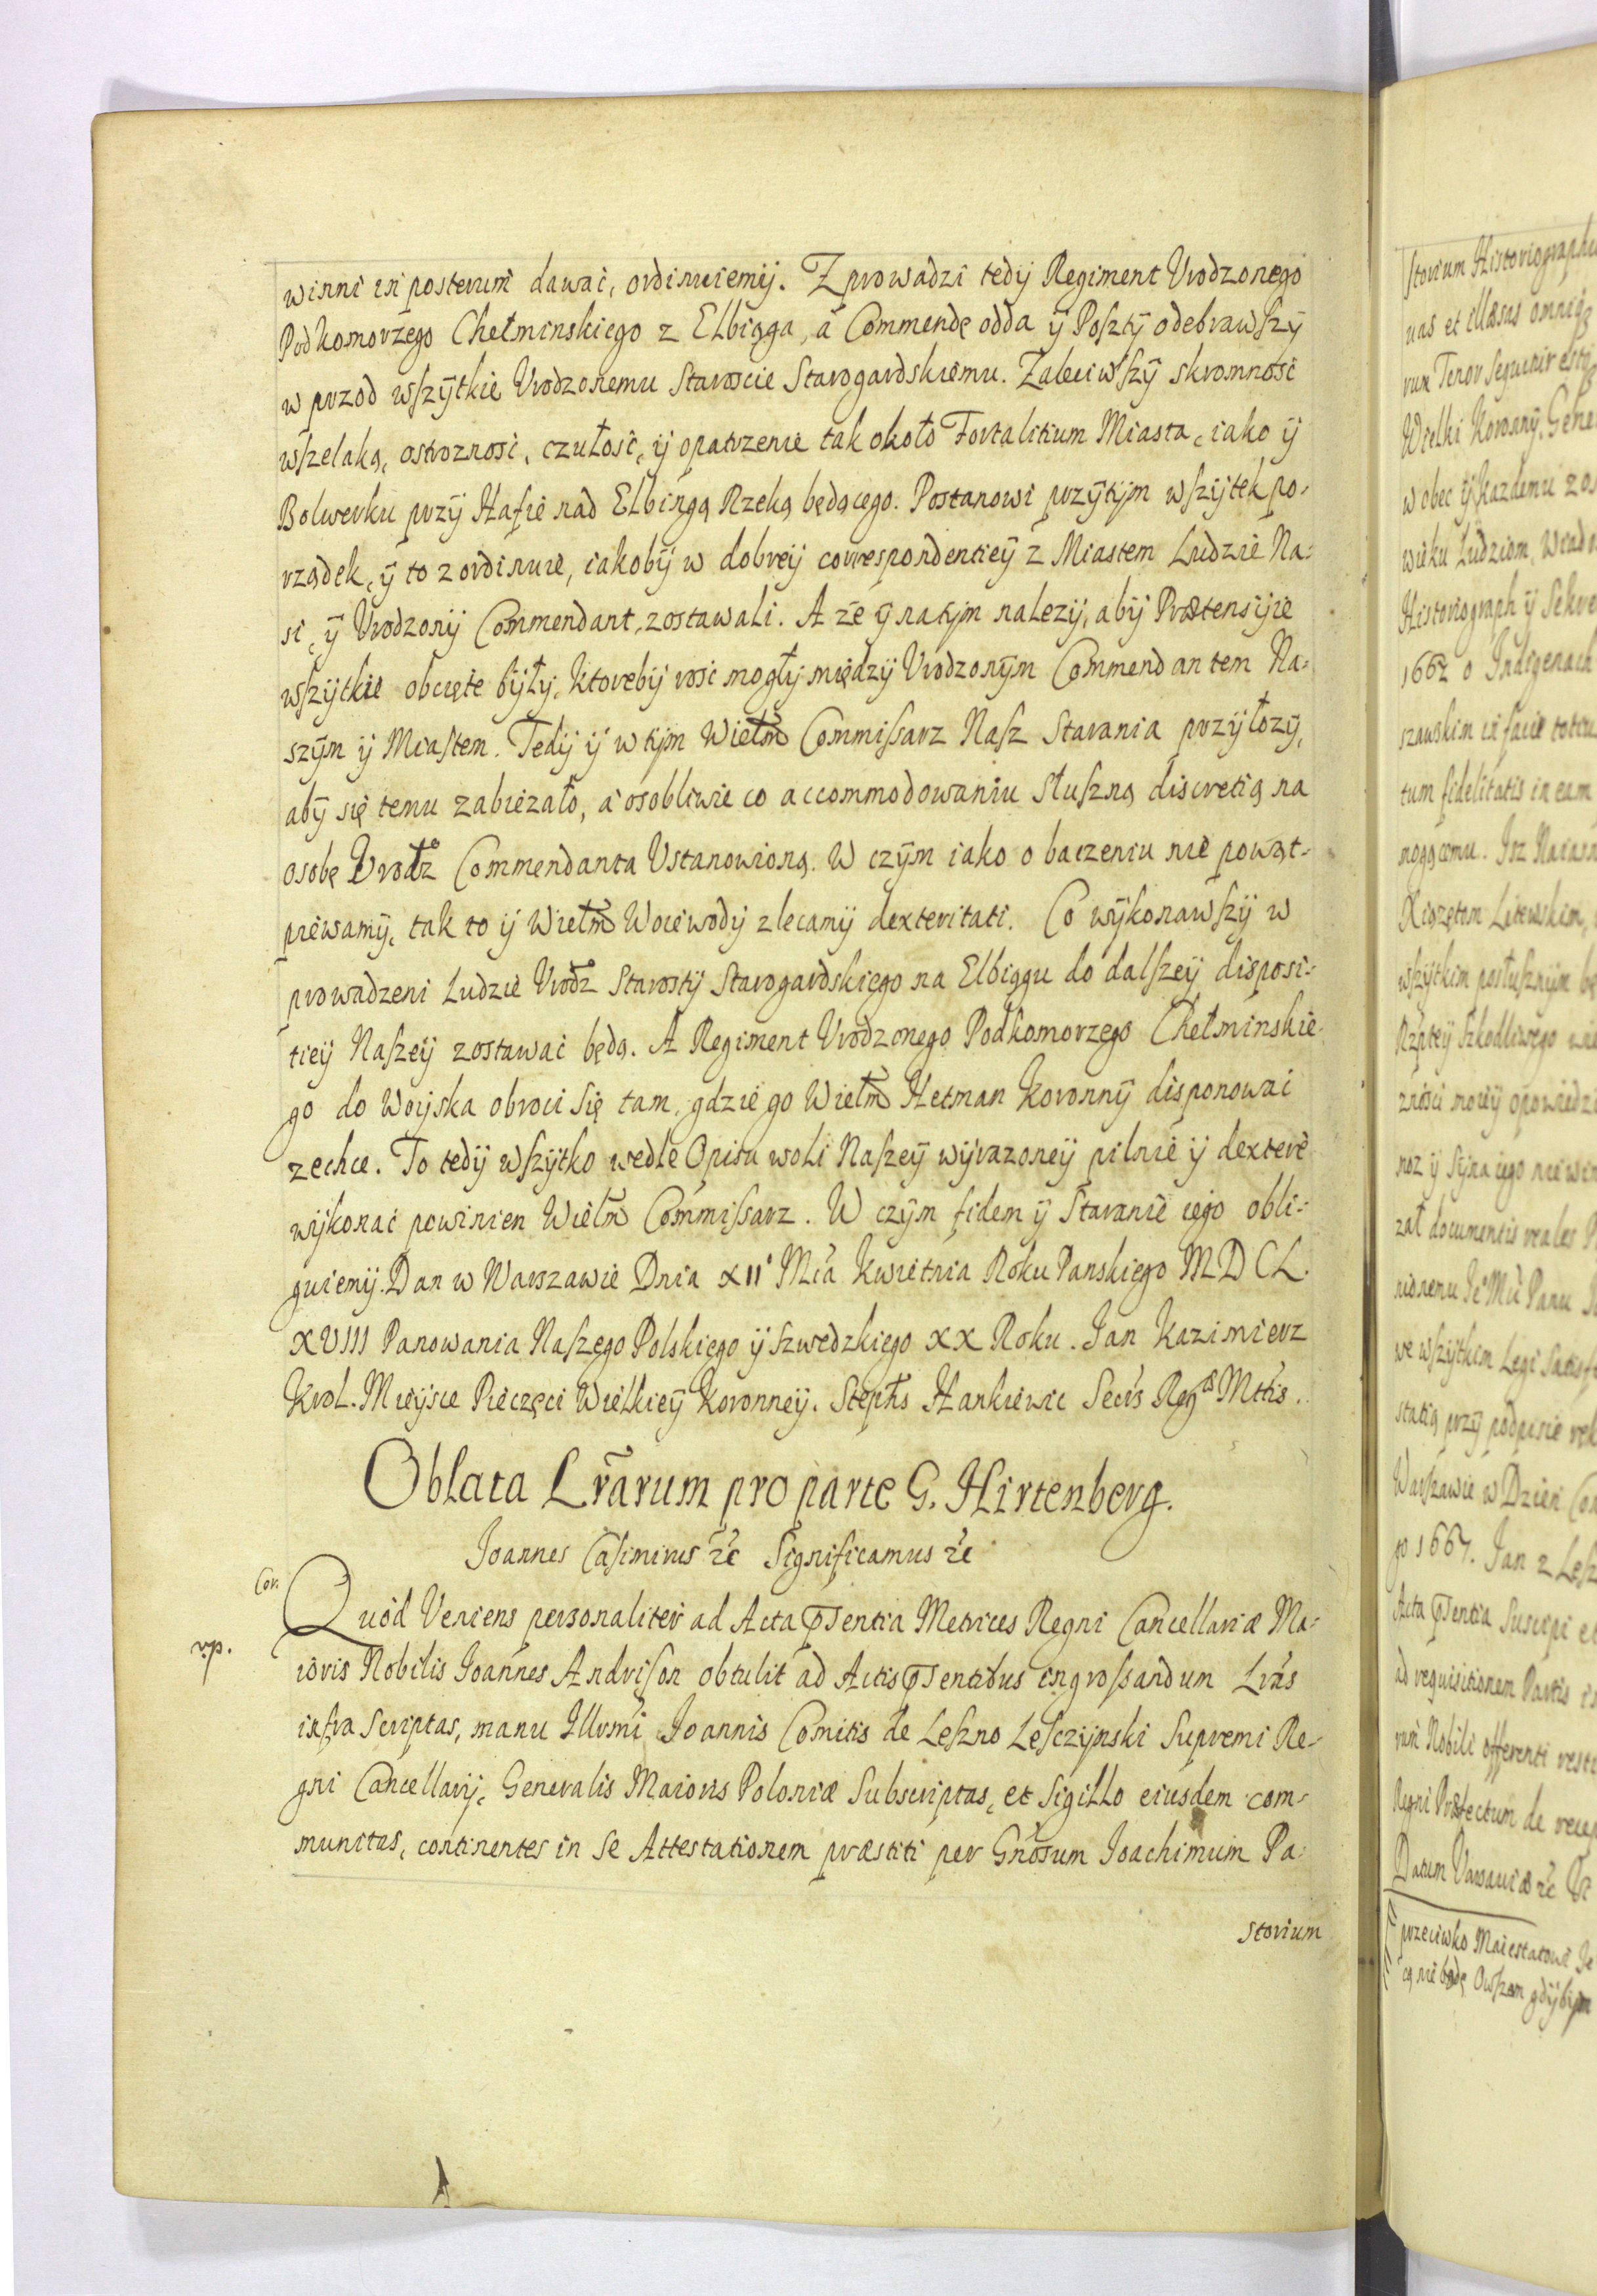 winni in posterum dawać, ordinuiemÿ. Zprowadzi tedÿ Regiment Vrodzonego
Podkomorzego Chełminskiego z Elbiąga, á Commendę odda ÿ Posztÿ odebrawszÿ
w przod wszÿtkie Vrodzonemu Staroscie Starogardskiemu. Zaleciwszÿ skromnosć
wszelaką, ostroznosć, czułosć, ÿ opatrzenie tak około Fortalitium Miasta, iako ÿ
Bolwerku przÿ Hafie nad Elbingą Rzeką będącego. Postanowi przÿtÿm wszÿtek po-
rządek, ÿ to zordinuie, iakobÿ w dobreÿ correspondentieÿ z Miastem Ludzie Na-
si, ÿ Vrodzonÿ Commendant, zostawali. A że ÿ natÿm nalezÿ, abÿ Prætensÿie
wszÿtkie obcięte bÿłÿ, ktorebÿ rosć mogłÿ międzÿ Vrodzonÿm Commendantem Na-
szÿm ÿ Miastem. Tedÿ ÿ w tÿm Wielm̃ Commissarz Nasz Starania przÿłozÿ,
abÿ się temu zabiezało, a osobliwie co accommodowaniu słuszną discretią na
osobę Vrodz̃o Commendanta Vstanowioną. W czÿm iako o baczeniu nie powąt-
piewamÿ, tak to ÿ Wielm̃ Woiewodÿ zlecamÿ dexteritati. Co wÿkonawszÿ w
prowadzeni Ludzie Vrodz̃o Starostÿ Starogardskiego na Elbiągu do dalszeÿ disposi-
tieÿ Naszeÿ zostawać będą. A Regiment Vrodzonego Podkomorzego Chełminskie-
go do Woÿska obroci się tam, gdzie go Wielm̃ Hetman Koronnÿ disponować
zechce. To tedÿ wszÿtko wedle Opisu woli Naszeÿ wÿrazoneÿ pilnie ÿ dextere
wÿkonać powinien Wielm̃ Commissarz. W czÿm fidem ÿ Staranie iego obli-
guiemÿ. Dan w Warszawie Dnia XII Mca Kwietnia Roku Panskiego MDCL
XVIII Panowania Naszego Polskiego ÿ Szwedzkiego XX Roku. Jan Kazimierz
Krol. Mieÿsce Pieczęci Wielkieÿ Koronneÿ. Stephs Hankiewic Secrs Regæ Mttis.
Oblata Lr̃arum pro parte G. Hirtenberg.
Joannes Casimirus &c Significamus &c
Cor.
Quod Veniens personaliter ad Acta pñsentia Metrices Regni Cancellariæ Ma-
r.p.
ioris Nobilis Joannes Andrison obtulit ad Actis pñsentibus ingrossandum Lras
infra Scriptas, manu Illrmi Joannis Comitis de Leszno Lesczÿnski Supremi Re-
gni Cancellarÿ, Generalis Maioris Poloniæ Subscriptas, et Sigillo eiusdem com-
munitas, continentes in Se Attestationem præstiti per Gnosum Joachimum Pa-
storium
storium Historiographu
uas et illæsas omniq
rum Tenor Sequitur esti
Wielki Koronnÿ, Gene
wobec ÿ kazdemu zos
wieku Ludziom, Wiado
Historiograph ÿ Sekre
1662 o Indigenach
szawskim in facie totiu
tum fidelitatis in eam
nogącemu. Isz Naiasn
Xiązętom Litewskim,
wszÿtkim posłusznÿm bę
Rzpteÿ Szkodliwego
znosci moieÿ opowiedzi
noz ÿ Sÿna iego niewin
zał documentis reales P
nionemu Je Mci Panu
we wszÿtkim Legi Satisf
statią przÿ podpisie ręk
Warszawie w Dzien
go 1667. Jan z Lesz
Acta pñsentia Suscipi et
ad requisitionem Partis
rum Nobili offerenti resti
Regni Præfectum de recep
Datum Varsaviæ &c
przeciwko Maiestatowi Je
cą nie będę Owszem gdÿbÿm